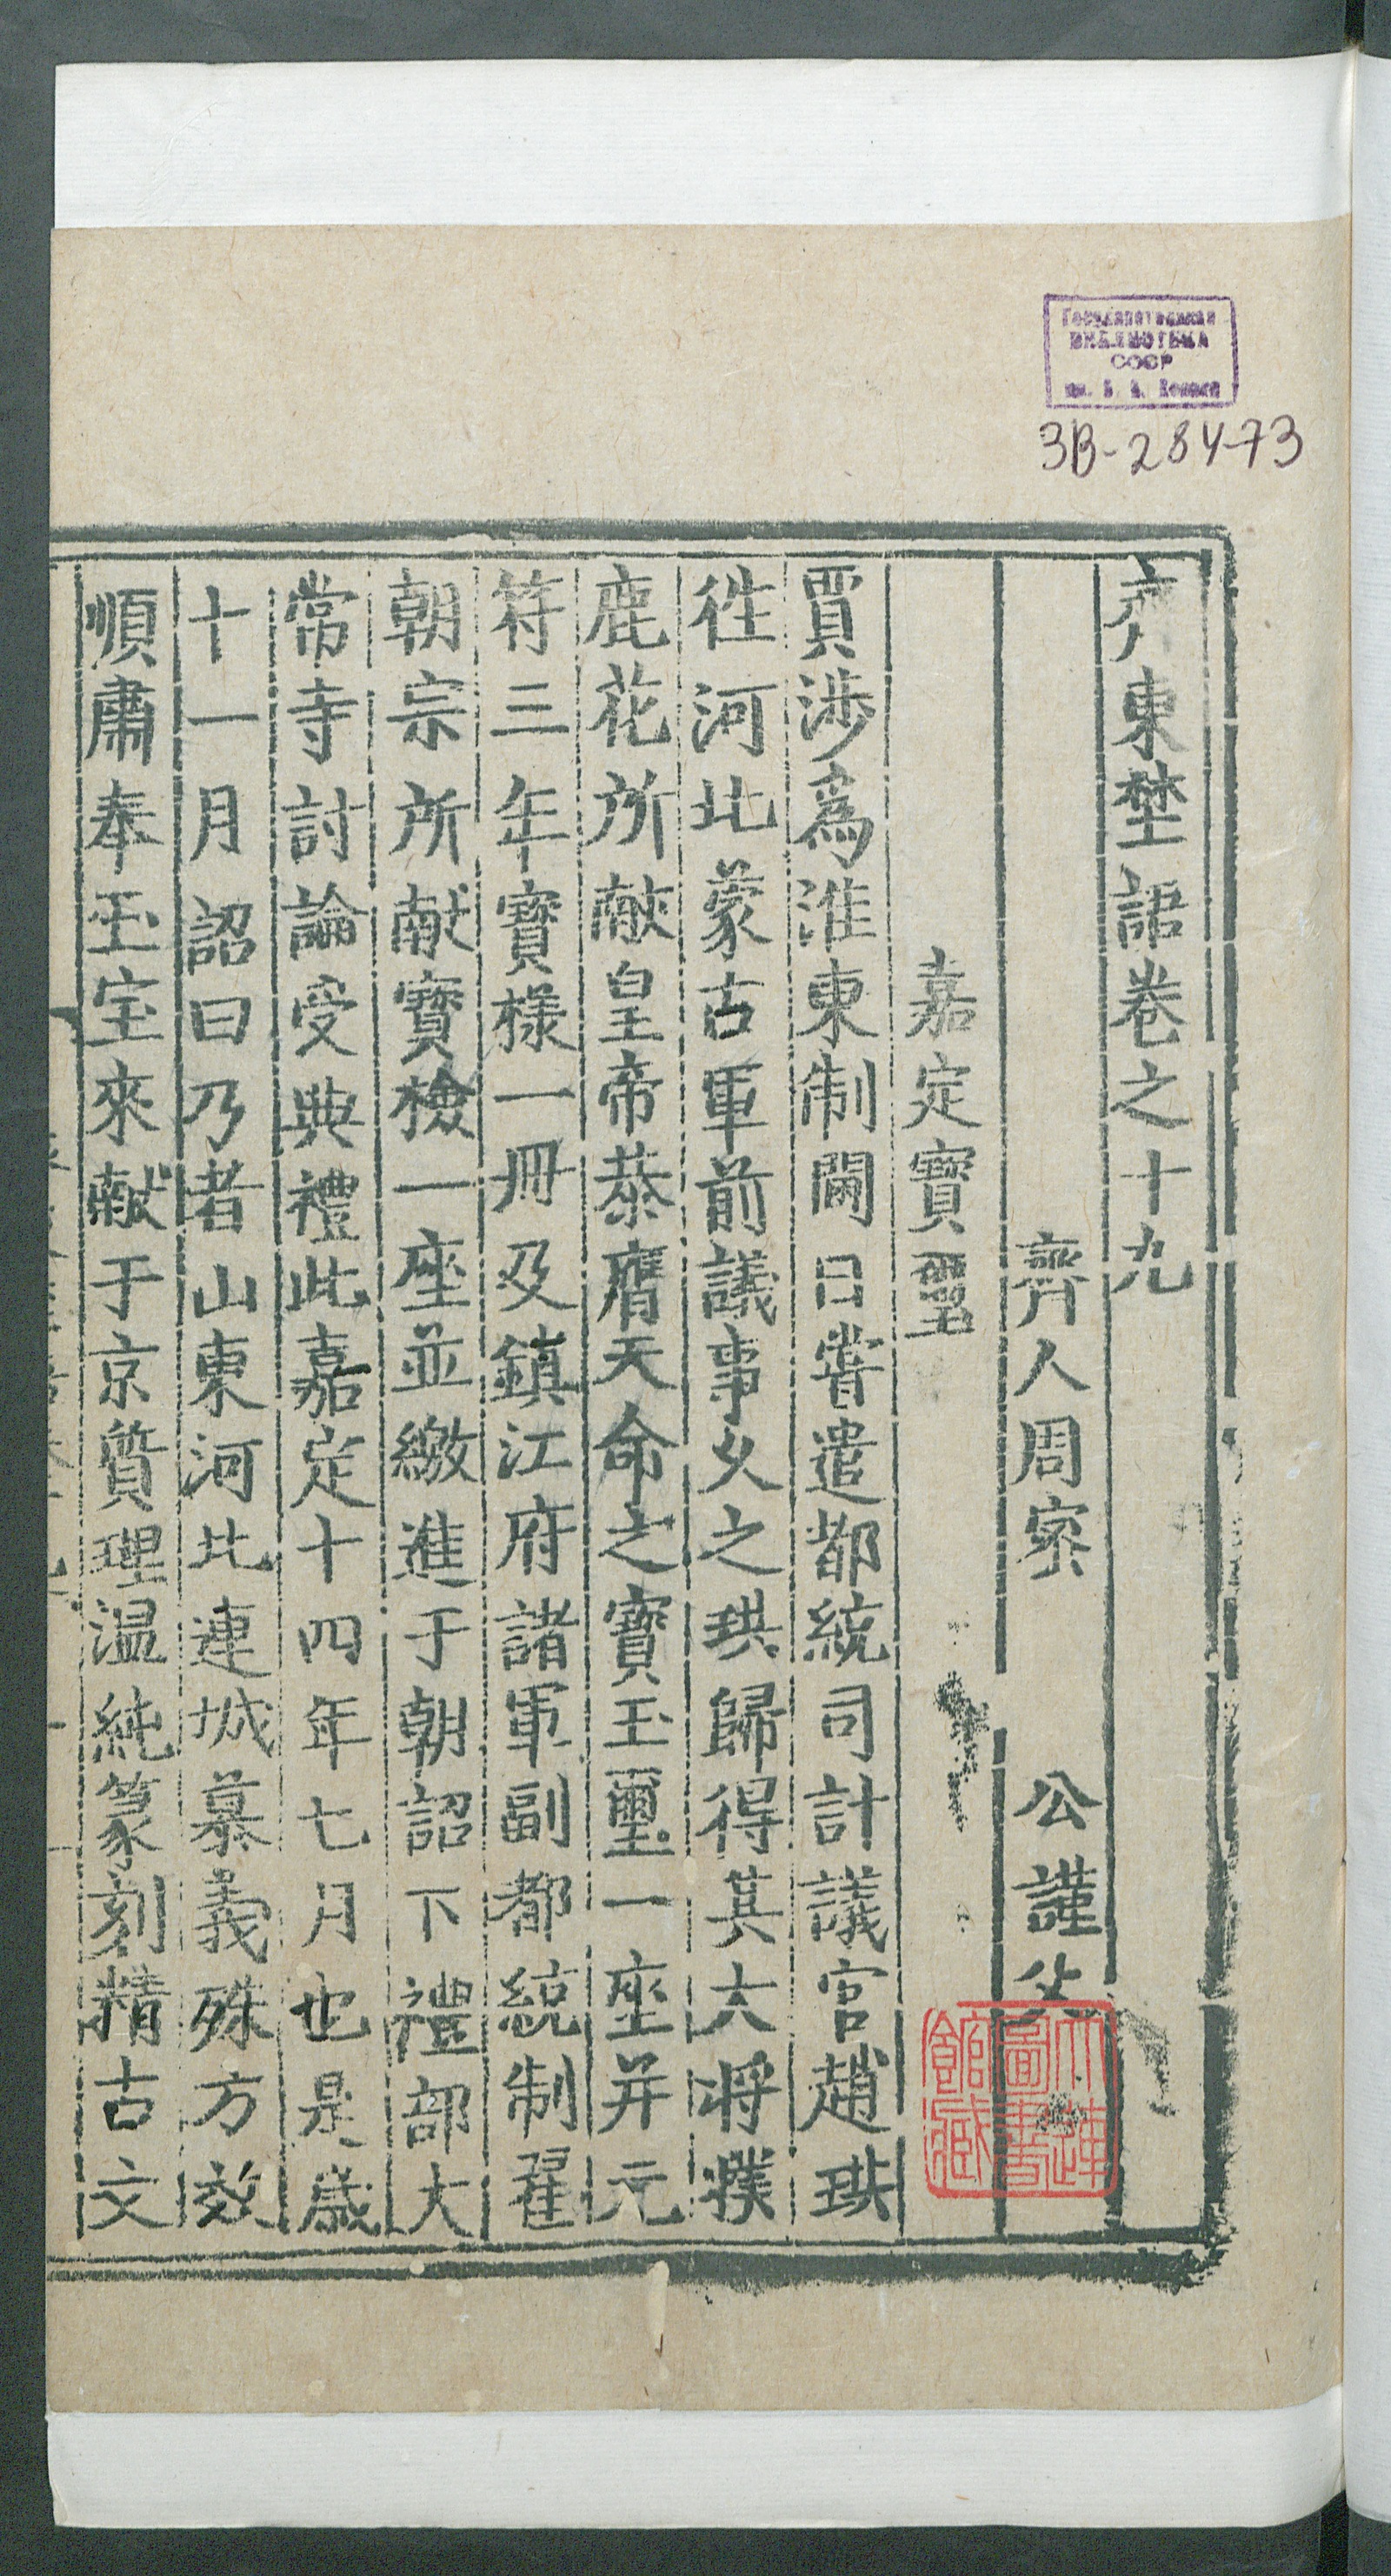 Государственная
БИБЛИОТЕКА
СССР
им. В. И. Ленина
3В-28473
齊東埜語卷之十九
齊人周宻 公謹父
嘉定寶璽
賈渉爲淮東制閫日甞遣都統司計議官趙珙
徃河北蒙古軍前議事乆之珙歸得其大將撲
鹿花所獻皇帝恭膺天命之寶玉璽一座并元
符三年寶樣一冊及鎮江府諸軍副都統制翟
朝宗所献寶檢一座並繳進于朝詔下禮部太
常寺討論受典禮此嘉定十四年七月也是歳
十一月詔曰乃者山東河北連城慕義殊方效
順肅奉玉宝來獻于京質理温純篆刻精古文
大連
圖書
館藏